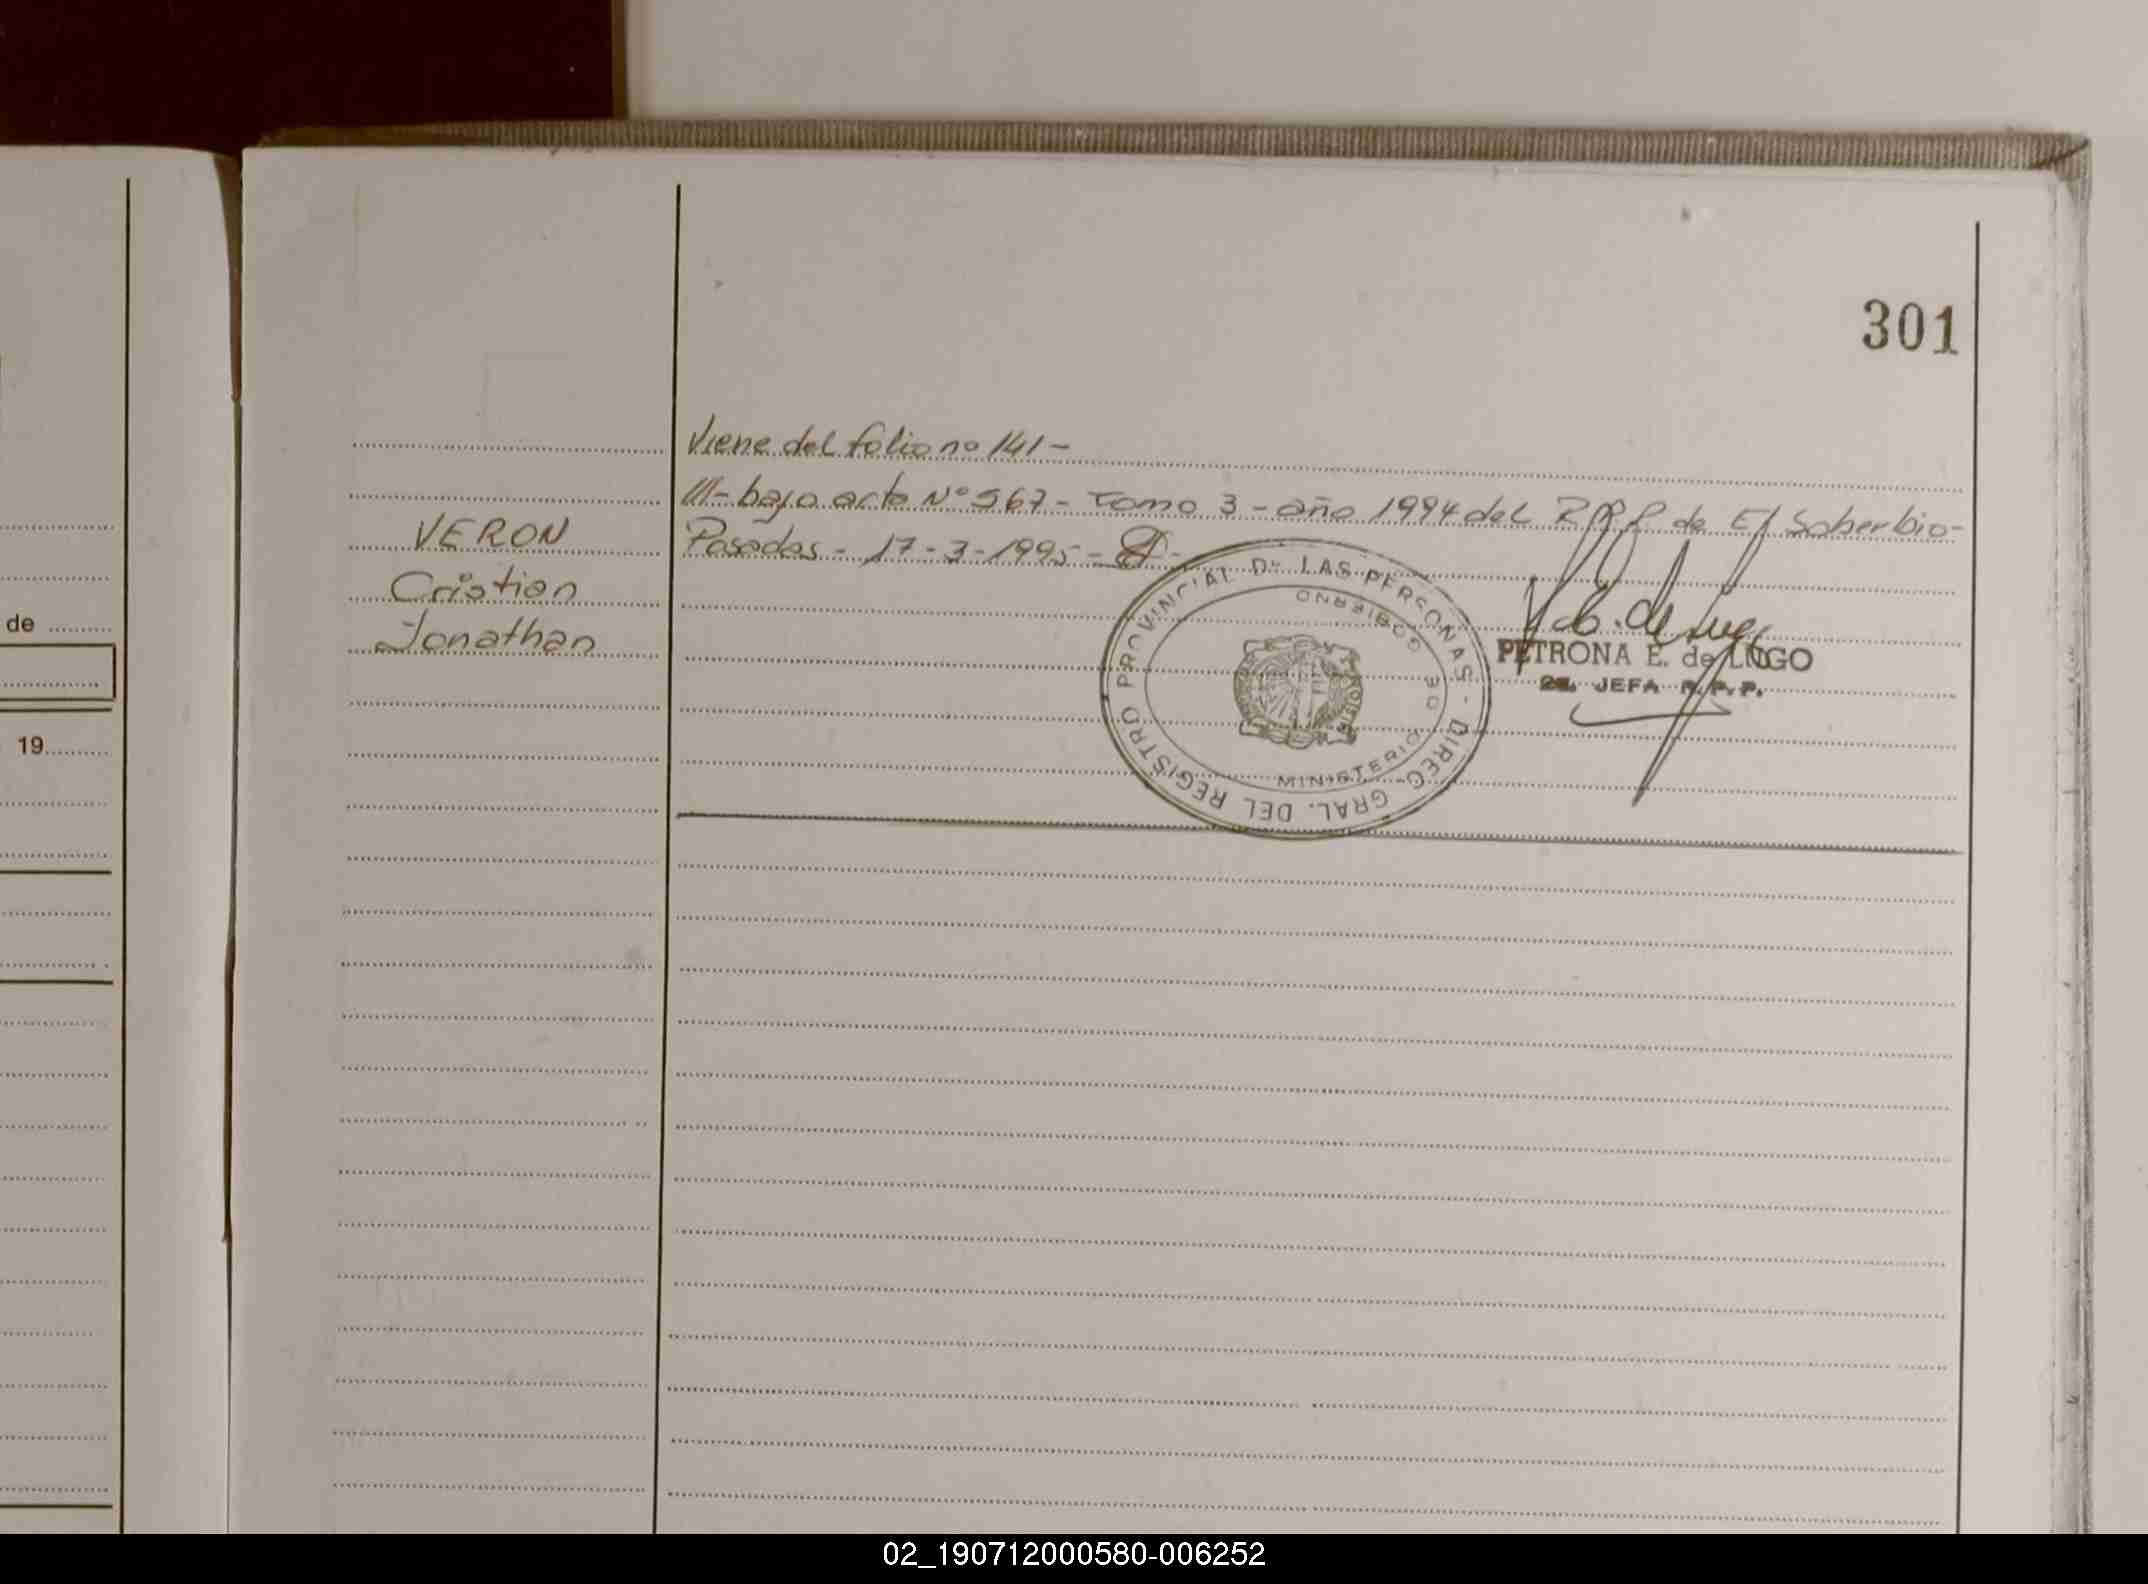 301
Viene del folio nº 141 -
///- bajo acta Nº 567 - Tomo 3 - año 1994 del R.P.P. de El Soberbio -
Posadas - 17 - 3 - 1995 -
VERON
Cristian
Jonathan
de
19
REGISTRO PROVINCIAL DE LAS PERSONAS - DIREC. GRAL. DEL
MINISTERIO DE GOBIERNO
PETRONA E. de LUGO
2a. JEFA R. P. P.
02_190712000580-006252